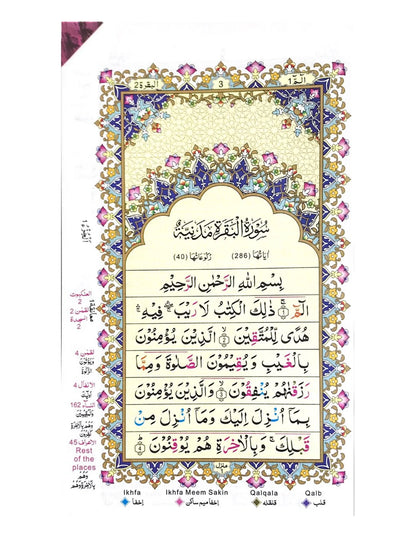 البقرة 2
3
الٓمّٓ 1
سُوْرَةُ الْبَقَرَةِ مَدَنِيَّةٌ
اٰيَاتُهَا (286)
رُكُوْعَاتُهَا (40)
بِسْمِ اللّٰهِ الرَّحْمٰنِ الرَّحِيْمِ
الٓمّٓ ۚ﴿1﴾ ذٰلِكَ الْكِتٰبُ لَا رَيْبَ ۛ فِيْهِ ۛ
هُدًى لِّلْمُتَّقِيْنَ ﴿2﴾ الَّذِيْنَ يُؤْمِنُوْنَ
بِالْغَيْبِ وَ يُقِيْمُوْنَ الصَّلٰوةَ وَ مِمَّا
رَزَقْنٰهُمْ يُنْفِقُوْنَ ﴿3﴾ وَالَّذِيْنَ يُؤْمِنُوْنَ
بِمَآ اُنْزِلَ اِلَيْكَ وَ مَآ اُنْزِلَ مِنْ
قَبْلِكَ ۚ وَ بِالْاٰخِرَةِ هُمْ يُوْقِنُوْنَ ﴿4﴾
منزل
العنكبوت
2
لقمن 2
السجدة
2
لقمن 4
الانفال 4
النساء 162
الاعراف 45
Rest
of the
places
Ikhfa
اخفا
Ikhfa Meem Sakin
اخفا میم ساکن
Qalqala
قلقله
Qalb
قلب